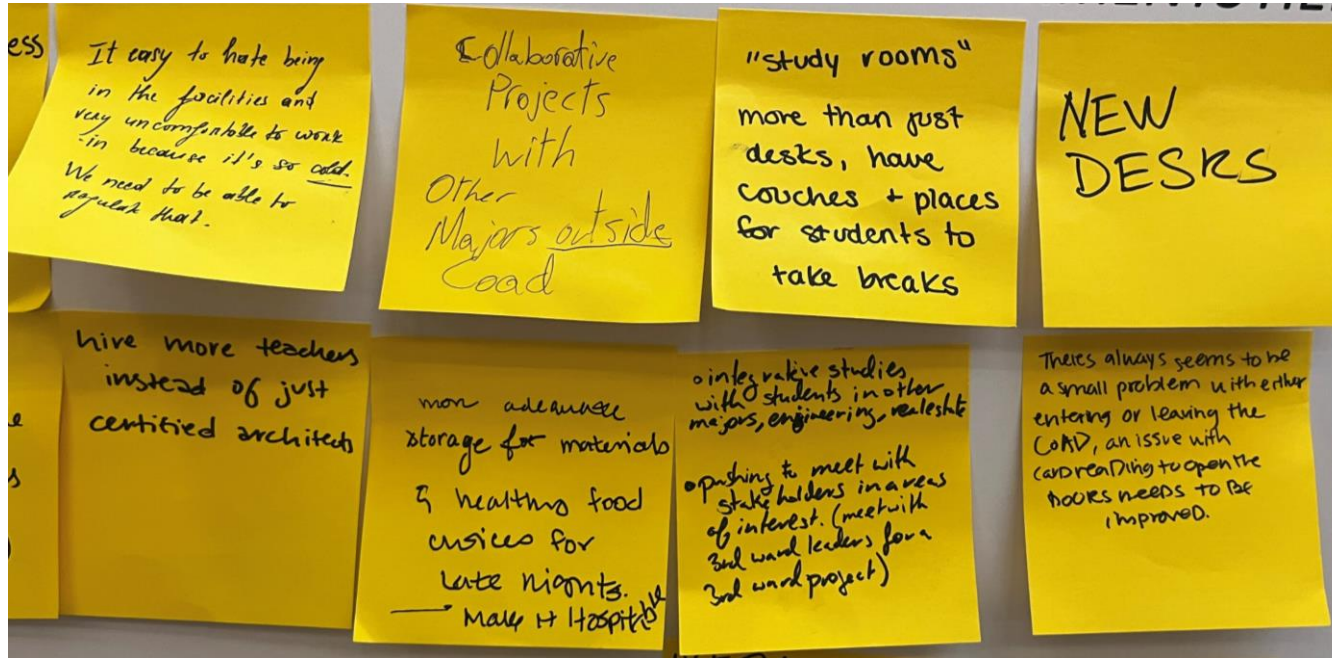 ess
It easy to hate being
in the facilities and
very uncomfortable to work
in because it's so cold.
We need to be able to
regulate that.
Collaborative
Projects
with
Other
Majors outside
Coad
"study rooms"
more than just
desks, have
couches + places
for students to
take breaks
NEW
DESKS
hire more teachers
instead of just
certified architects
more adequate
storage for materials
& healthy food
choices for
late nights.
Make it Hospitable
o integrative studies
with students in other
majors, engineering, real estate
• pushing to meet with
stakeholders in areas
of interest. (meet with
3rd ward leaders for a
3rd ward project)
Theres always seems to be
a small problem with either
entering or leaving the
CoAD, an issue with
card reading to open the
DOORS needs to BE
improved.